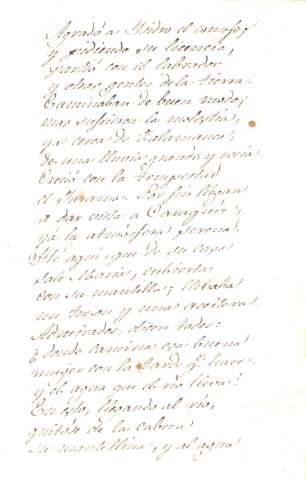 Agradó a Isidro el consejo;
y pidiendo su licencia,
partió con el labrador
y otras gentes de la tierra.
Caminaban de buen modo;
mas sufrieron la molestia,
ya cerca de Talamanca,
de una lluvia grande y recia.
Creció con la tempestad
el Jarama. Por fin llegan
a dar vista a Caraquiz,
ya la atmósfera serena.
He aquí, que de su casa
sale María, cubierta
con su mantilla; llevaba
un tizon y una aceitera
Admirados, dicen todos:
¿donde camina esa buena
muger con la tarde q.e hace,
y el agua que el rio lleva?
En esto, llegando al rio,
quitóse de la cabeza
su mantellina, y al agua